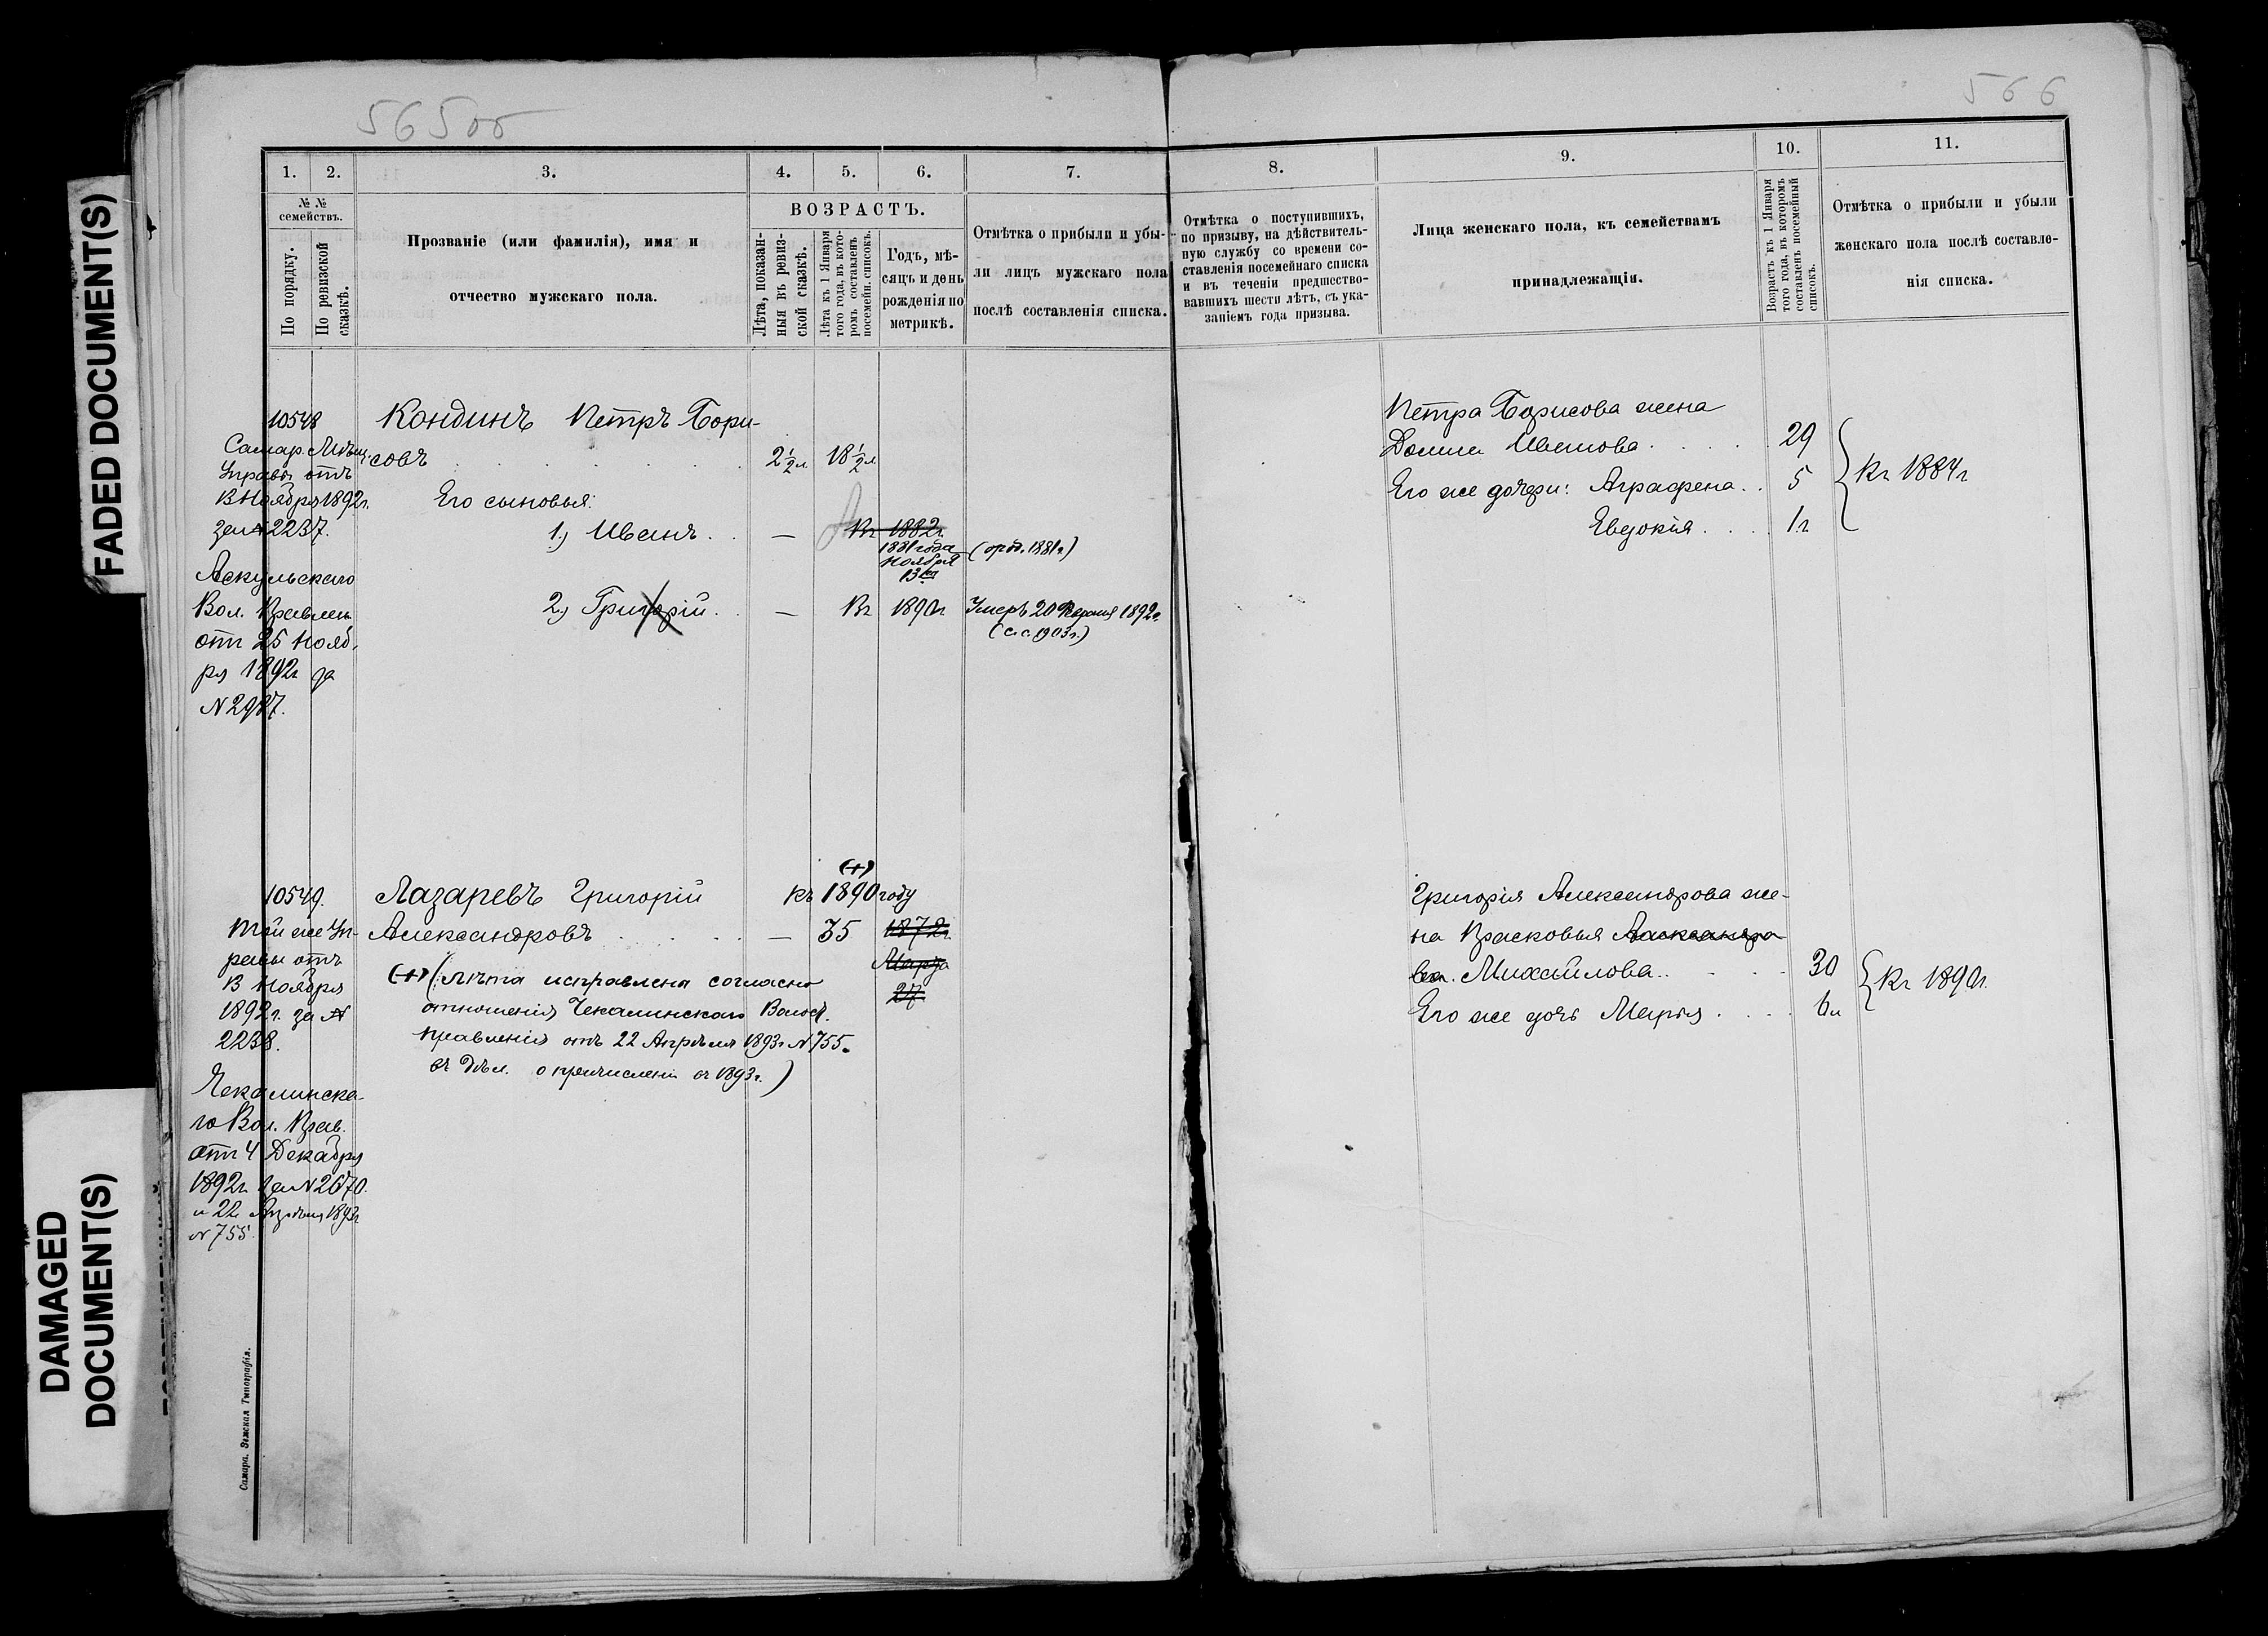 565об
566
FADED DOCUMENT(S)
DAMAGED
DOCUMENT(S)
1.
2.
3.
4.
5.
6.
7.
8.
9.
10.
11.
№ №
семействъ.
По порядку.
По ревизской
сказкѣ.
Прозваніе (или фамилія), имя и
отчество мужскаго пола.
ВОЗРАСТЪ.
Лѣта, показан-
ныя въ ревиз-
ской сказкѣ.
Лѣта къ 1 Января
того года, въ кото-
ромъ составленъ
посемейн. списокъ.
Годъ, мѣ-
сяцъ и день
рожденія по
метрикѣ.
Отмѣтка о прибыли и убы-
ли лицъ мужскаго пола
послѣ составленія списка.
Отмѣтка о поступившихъ,
по призыву, на дѣйствитель-
ную службу со времени со-
ставленія посемейнаго списка
и въ теченіи предшество-
вавшихъ шести лѣтъ, съ ука-
заніемъ года призыва.
Лица женскаго пола, къ семействамъ
принадлежащія.
Возрастъ къ 1 Января
того года, въ которомъ
составленъ посемейный
списокъ.
Отмѣтка о прибыли и убыли
женскаго пола послѣ составле-
нія списка.
10548
Самар. Мѣщ.
Управы отъ
Ноября 1892г.
за № 2237.
Аскульскаго
Вол. Правлен
отъ 25 Нояб-
ря 1892г за
N 2987.
Кондинъ Петръ Бори-
совъ 2½л. 18½л
Его сыновья:
1.) Иванъ — Къ 1882г.
1881 года
Ноября
13го
( 1881г.)
2.) Григорій — Къ 1890г Умеръ 20 1892г.
(с.с. 1903г.)
Петра Борисова жена
Домна Иванова 29
Его же дочери: Аграфена 5
Евдокія 1г
Къ 1884г
10549.
Той же Уп-
равы отъ
Ноября
1892г. за №
2238.
Чекалинска-
го Вол. Прав.
отъ 4 Декабря
1892г. за N 2670.
и 22 Апрѣля 1893г
N 755.
(+)
Лазаревъ Григорій къ 1890 году
Александровъ — 35 1872г.
Марта
27
(+) (лѣта исправлены согласно
отношенія Чекалинскаго Волост.
Правленія отъ 22 Апрѣля 1893г N 755.
въ Дѣл. о причисленіи въ 1893г.)
Григорія Александрова же-
на Прасковья Александро
ва. Михайлова 30
Его же дочь Марья 6л
Къ 1890г.
Самара. Земская Типографія.